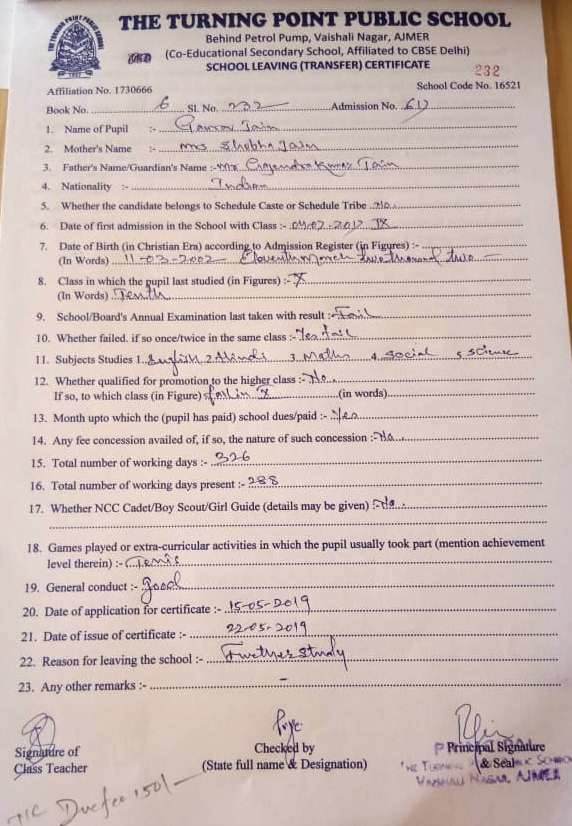 THE TURNING POINT PUBLIC SCHOOL
Behind Petrol Pump, Vaishali Nagar, AJMER
(Co-Educational Secondary School, Affiliated to CBSE Delhi)
SCHOOL LEAVING (TRANSFER) CERTIFICATE
232
Affiliation No. 1730666 School Code No. 16521
Book No. 6 Sl. No. 232 Admission No.
1. Name of Pupil :- Gaurav Jain
2. Mother's Name :- Mrs Shobha Jain
3. Father's Name/Guardian's Name :- Mr Gajendra Kumar Jain
4. Nationality :- Indian
5. Whether the candidate belongs to Schedule Caste or Schedule Tribe No.
6. Date of first admission in the School with Class :- 04-07-2017 IX
7. Date of Birth (in Christian Era) according to Admission Register (in Figures) :-
(In Words) 11-03-2002 Eleventh March two thousand two
8. Class in which the pupil last studied (in Figures) :- X
(In Words) Tenth
9. School/Board's Annual Examination last taken with result :- Fail
10. Whether failed, if so once/twice in the same class :- Yes fail
11. Subjects Studies 1. English 2. Hindi 3. Maths 4. Social 5. Science
12. Whether qualified for promotion to the higher class :- No.
If so, to which class (in Figure) fail in X (in words)
13. Month upto which the (pupil has paid) school dues/paid :- Yes
14. Any fee concession availed of, if so, the nature of such concession :- No.
15. Total number of working days :- 326
16. Total number of working days present :- 288
17. Whether NCC Cadet/Boy Scout/Girl Guide (details may be given) :- No.
18. Games played or extra-curricular activities in which the pupil usually took part (mention achievement
level therein) :- Tenis
19. General conduct :- good
20. Date of application for certificate :- 15-05-2019
21. Date of issue of certificate :- 22-05-2019
22. Reason for leaving the school :- Further study
23. Any other remarks :- –
Signature of
Class Teacher
Checked by
(State full name & Designation)
Principal Signature
& Seal
VAISHALI NAGAR, AJMER
T/C Due fee 150/-